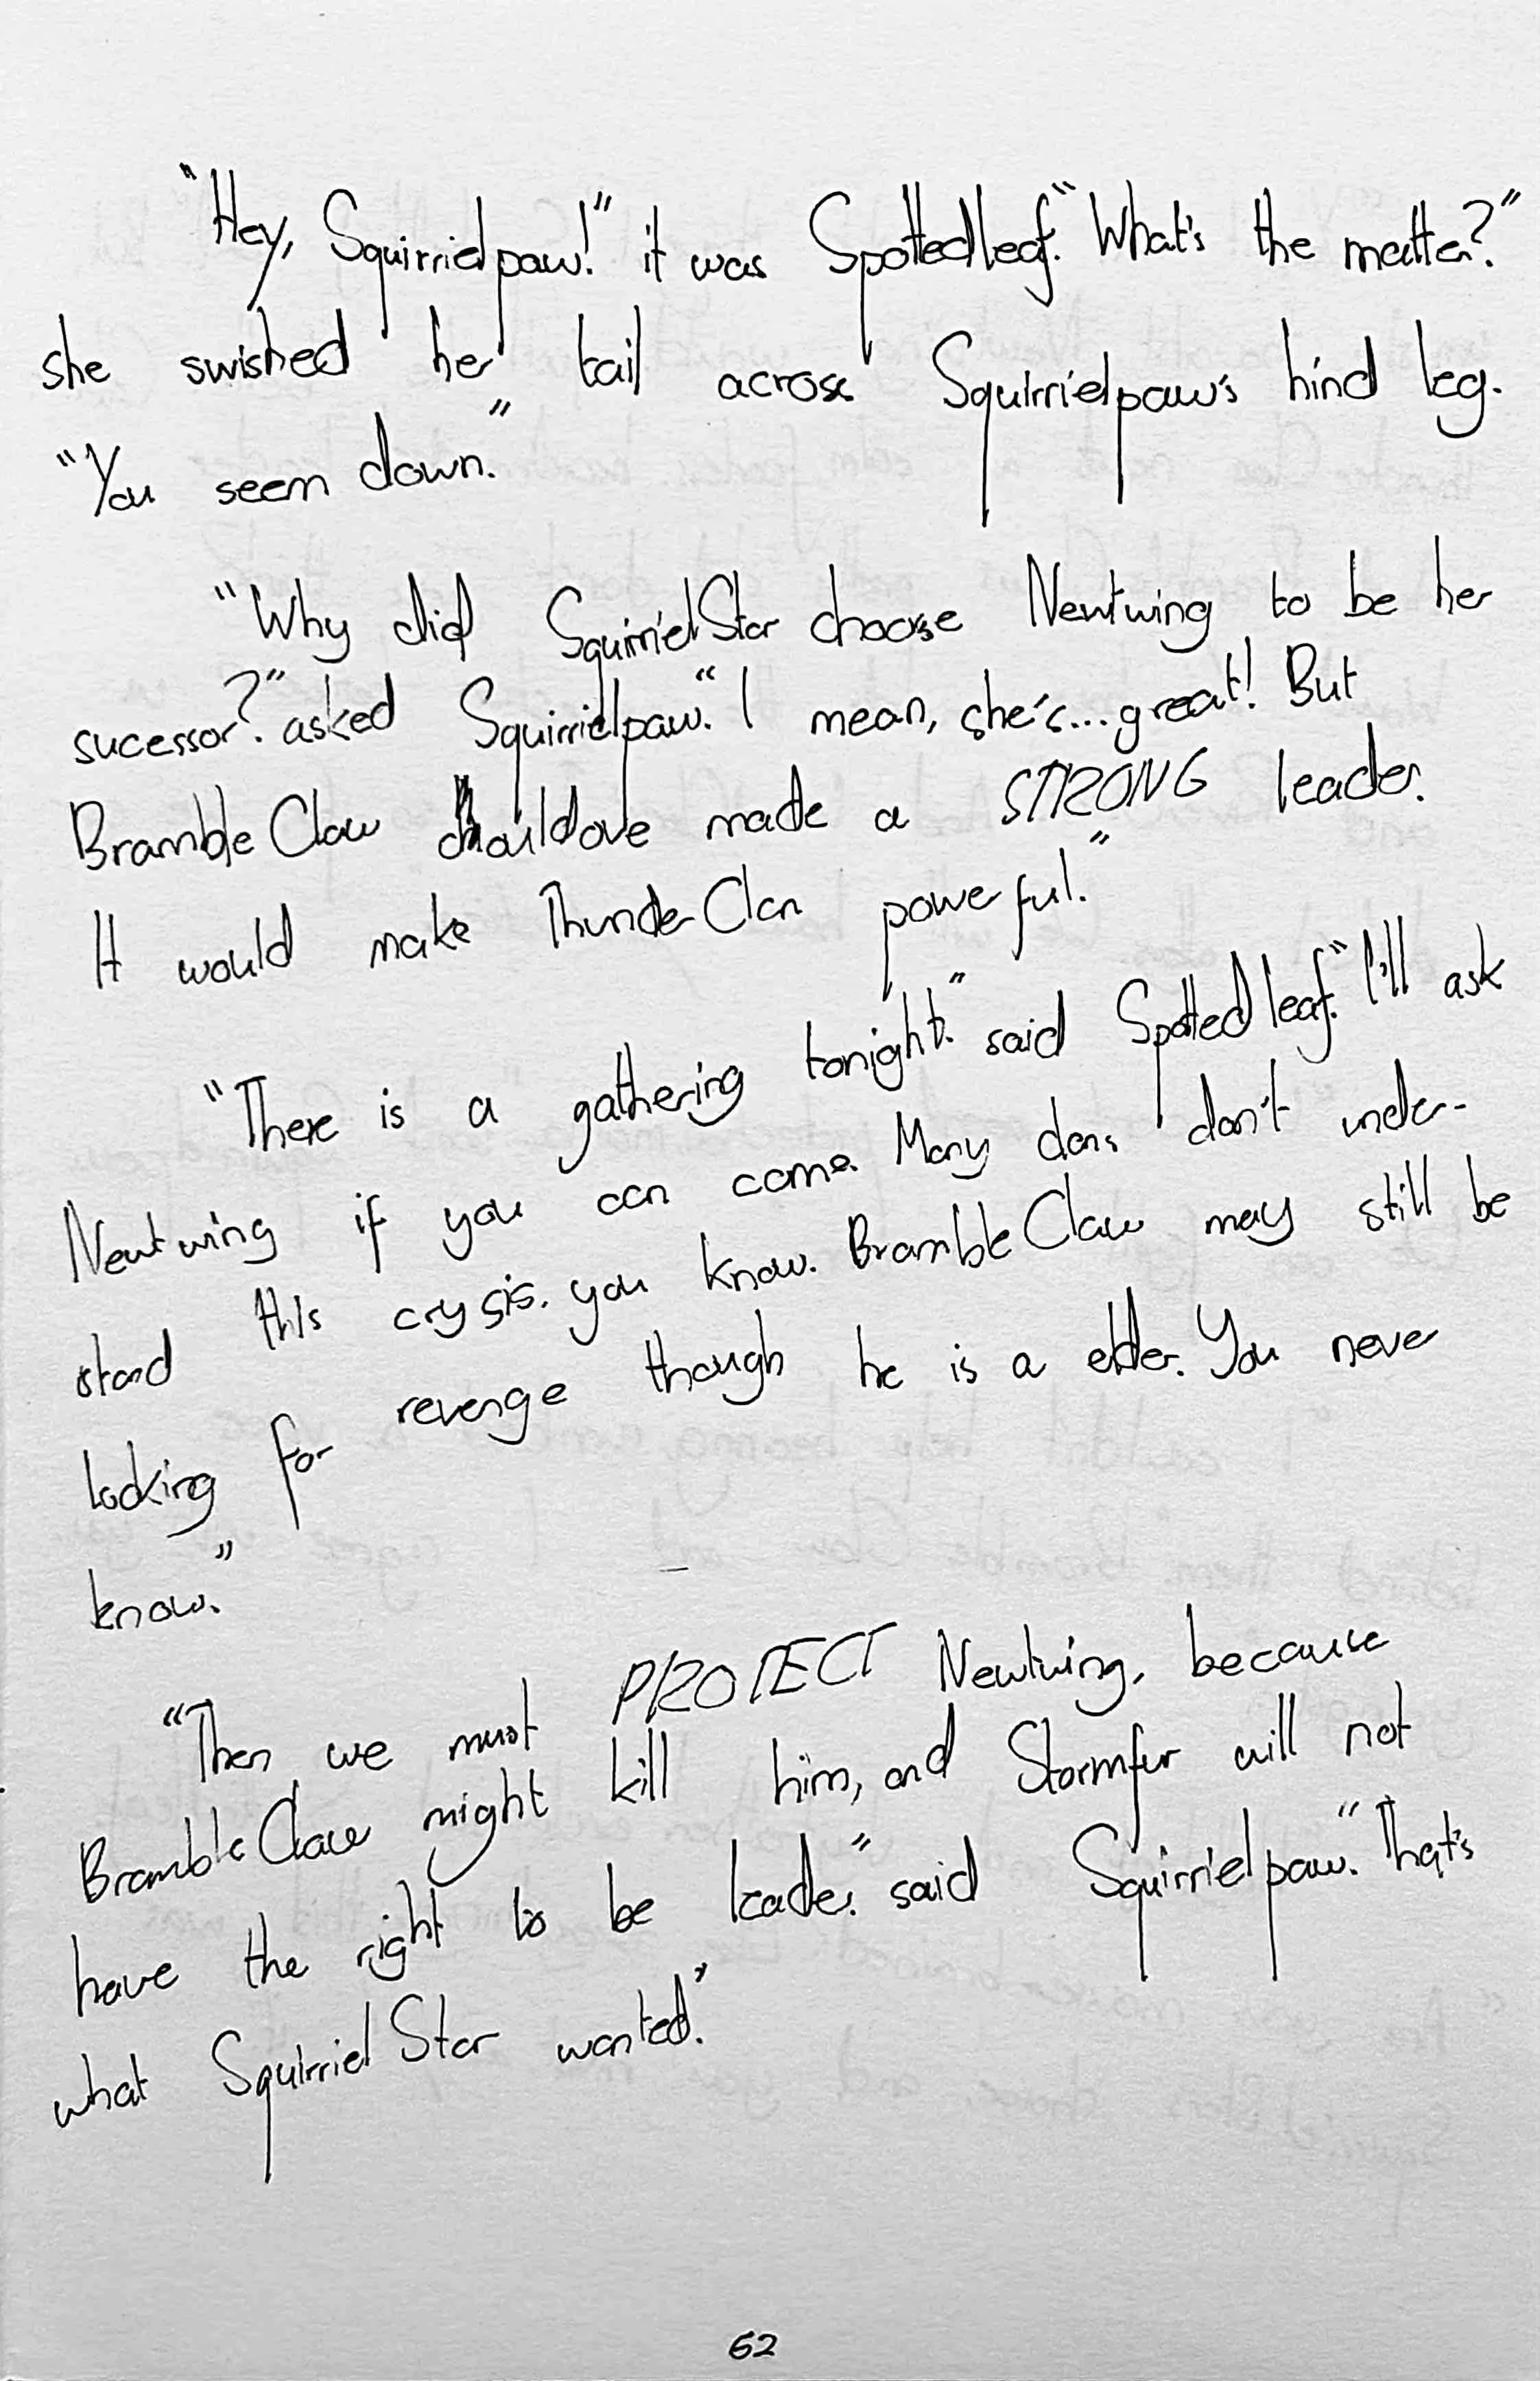 "Hey, Squirrielpaw!" it was Spottedleaf. "What's the matter?"
she swished her tail across Squirrielpaw's hind leg.
"You seem down."
"Why did SquirrielStar choose Newtwing to be her
sucessor?" asked Squirrielpaw. "I mean, she's... great! But
BrambleClaw should ove made a STRONG leader.
It would make ThunderClan powerful."
"There is a gathering tonight." said Spottedleaf. "I'll ask
Newtwing if you can come. Many clans don't under-
stand this crysis, you know. BrambleClaw may still be
looking for revenge though he is a elder. You never
know."
"Then we must PROTECT Newtwing, because
BrambleClaw might kill him, and Stormfur will not
have the right to be leader." said Squirrielpaw. "That's
what SquirrielStar wanted."
62